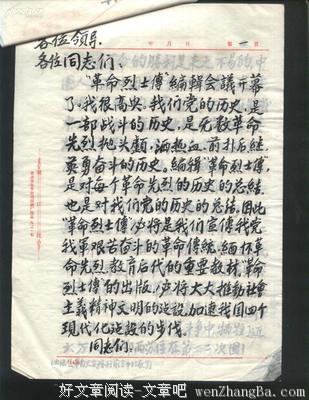 年 月 日 第 一 页
各位领导.
各位同志们、
“革命烈士傳”编辑会议开幕
了,我很高兴。我们党的历史,是
一部战斗的历史,是无数革命
先烈抛头颅,洒热血,前扑后继,
英勇奋斗的历史。编辑“革命烈士傳”,
是对每个革命先烈的历史的总结,
也是对我们党的历史的总结。因此
“革命烈士傳”必将是我们宣傳我党
我军艰苦奋斗的革命傳统,缅怀革
命先烈、教育后代的重要教材。“革命
烈士傳”的出版,必将大大推動社會
主義精神文明的建設,加速我国四个
现代化建設的步伐。
同志们:
好文章阅读-文章吧 wenZhangBa.com